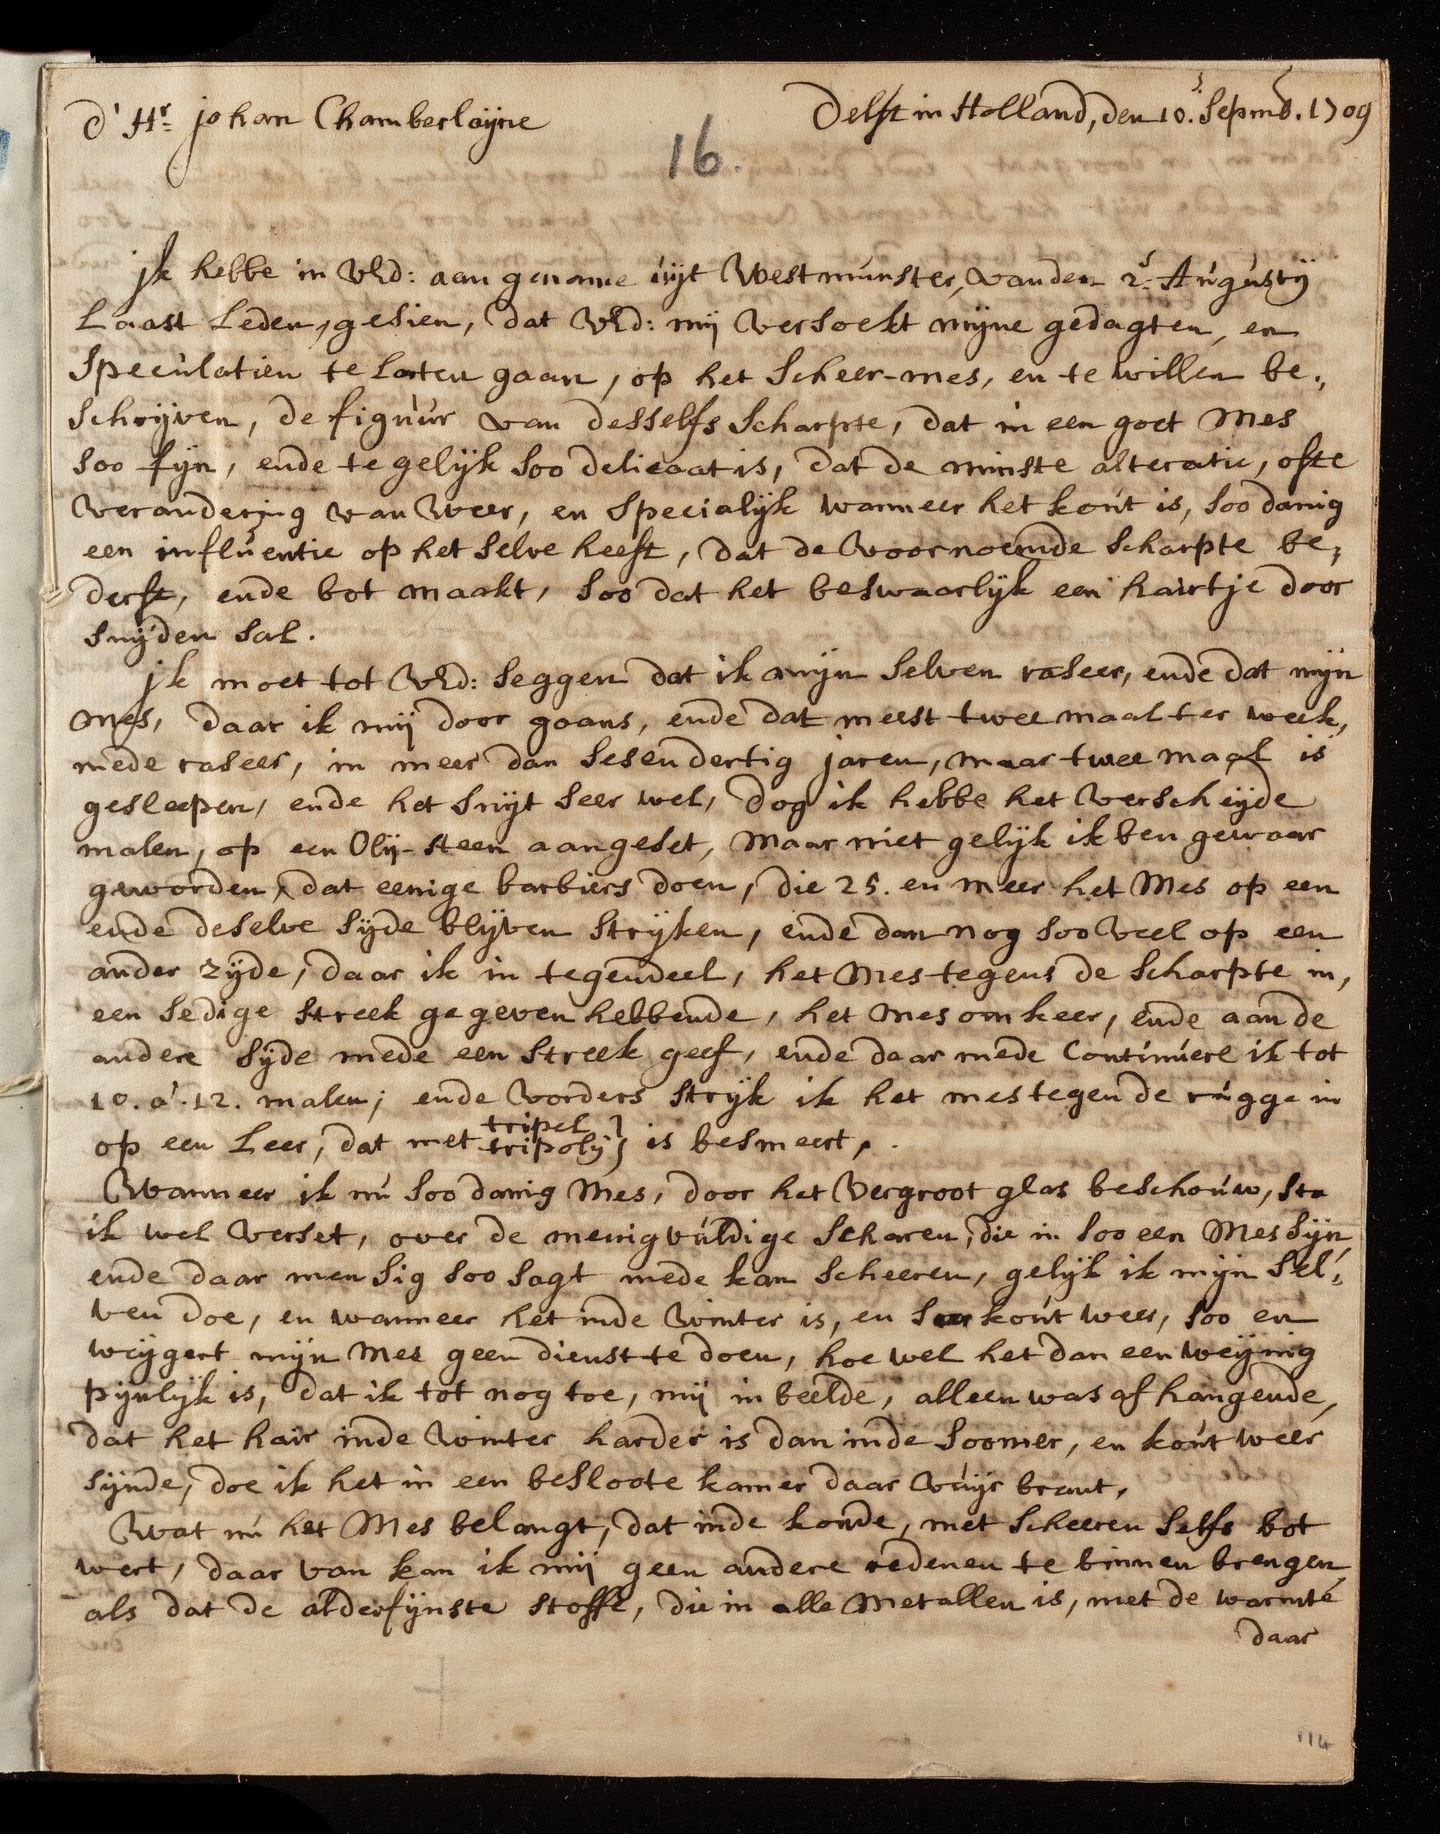 d' Hr. johan Chamberlaijne
Delft in Holland, den 10.e Sepmb. 1709
16.
jk hebbe in UEd: aan gename uijt Westmunster, vanden 2e. Augustij
Laast Leden, gesien, dat UEd: mij versoekt mijne gedagten, en
Speculatien te Laten gaan, op het Scheer-mes, en te willen be„
Schrijven, de figuur van desselfs Scharpte, dat in een goet Mes
Soo fijn, ende te gelijk Soo delicaat is, dat de minste alteratie, ofte
verandering van Weer, en Specialijk wanneer het kout is, Soo danig
een influentie op het Selve heeft, dat de voornoemde Scharpte be„
derft, ende bot maakt, Soo dat het beswaarlijk een hairtje door
Snijden Sal.
jk moet tot UEd: Seggen dat ik mijn Selven raseer, ende dat mijn
mes, daar ik mij door gaans, ende dat meest twee maal ter week,
mede raseer, in meer dan Sesendertig jaren, maar twee maal is
gesleepen, ende het Snijt Seer wel, dog ik hebbe het verscheijde
malen, op een Olij-steen aangeset, Maar niet gelijk ik ben gewaar
geworden, dat eenige barbiers doen, die 25. en meer het Mes op een
ende deselve Sijde blijven Strijken, ende dan nog Soo Veel op een
ander zijde, daar ik in tegendeel, het Mes tegens de Scharpte in,
een Sedige Streek gegeven hebbende, het mes om keer, ende aan de
andere Sijde mede een Streek geef, ende daar mede Continuere ik tot
10. a. 12. malen; ende vorders Strijk ik het mes tegen de rugge in
op een Leer, dat met tripoly is besmeert,
tripel
Wanneer ik nu Soo danig Mes, door het Vergroot glas beschouw, Sta
ik wel verset, over de menigvuldige Scharen, die in Soo een Mes Sijn,
ende daar men Sig Soo Sagt mede kan Scheeren, gelijk ik mijn Sel„
ven doe, en wanneer het inde Winter is, en Seer kout weer, Soo en
weijgert mijn Mes geen dienst te doen, hoe wel het dan een weijnig
pijnlijk is, dat ik tot nog toe, mij in beelde, alleen was af hangende,
dat het hair inde Winter harder is dan inde Soomer, en kout weer
Sijnde, doe ik het in een besloote kamer daar vuijr brant,
Wat nu het Mes belangt, dat inde koude, met Scheeren Selfs bot
wert, daar van kan ik mij geen andere redenen te binnen brengen
als dat de alderfijnste Stoffe, die in alle Metallen is, met de warmte
daar
114